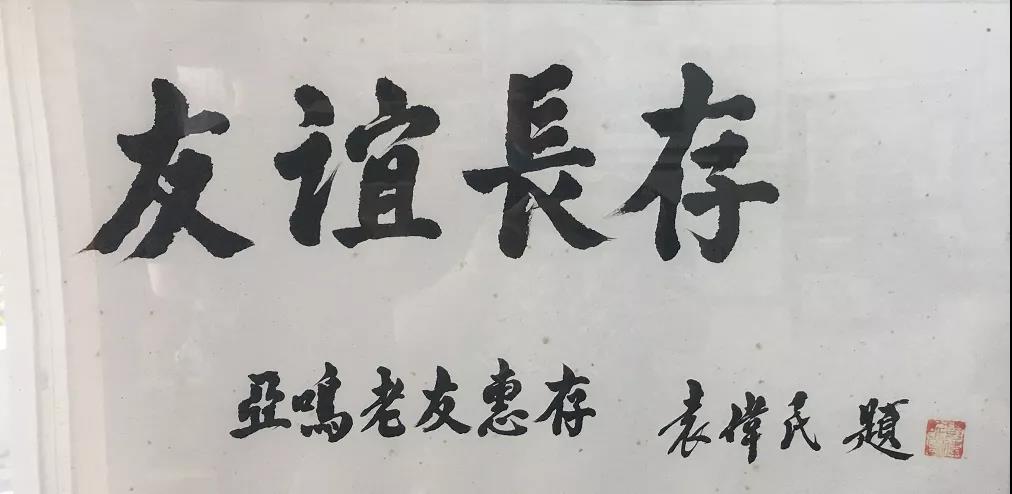 友誼長存
亞鳴老友惠存 袁偉民 題